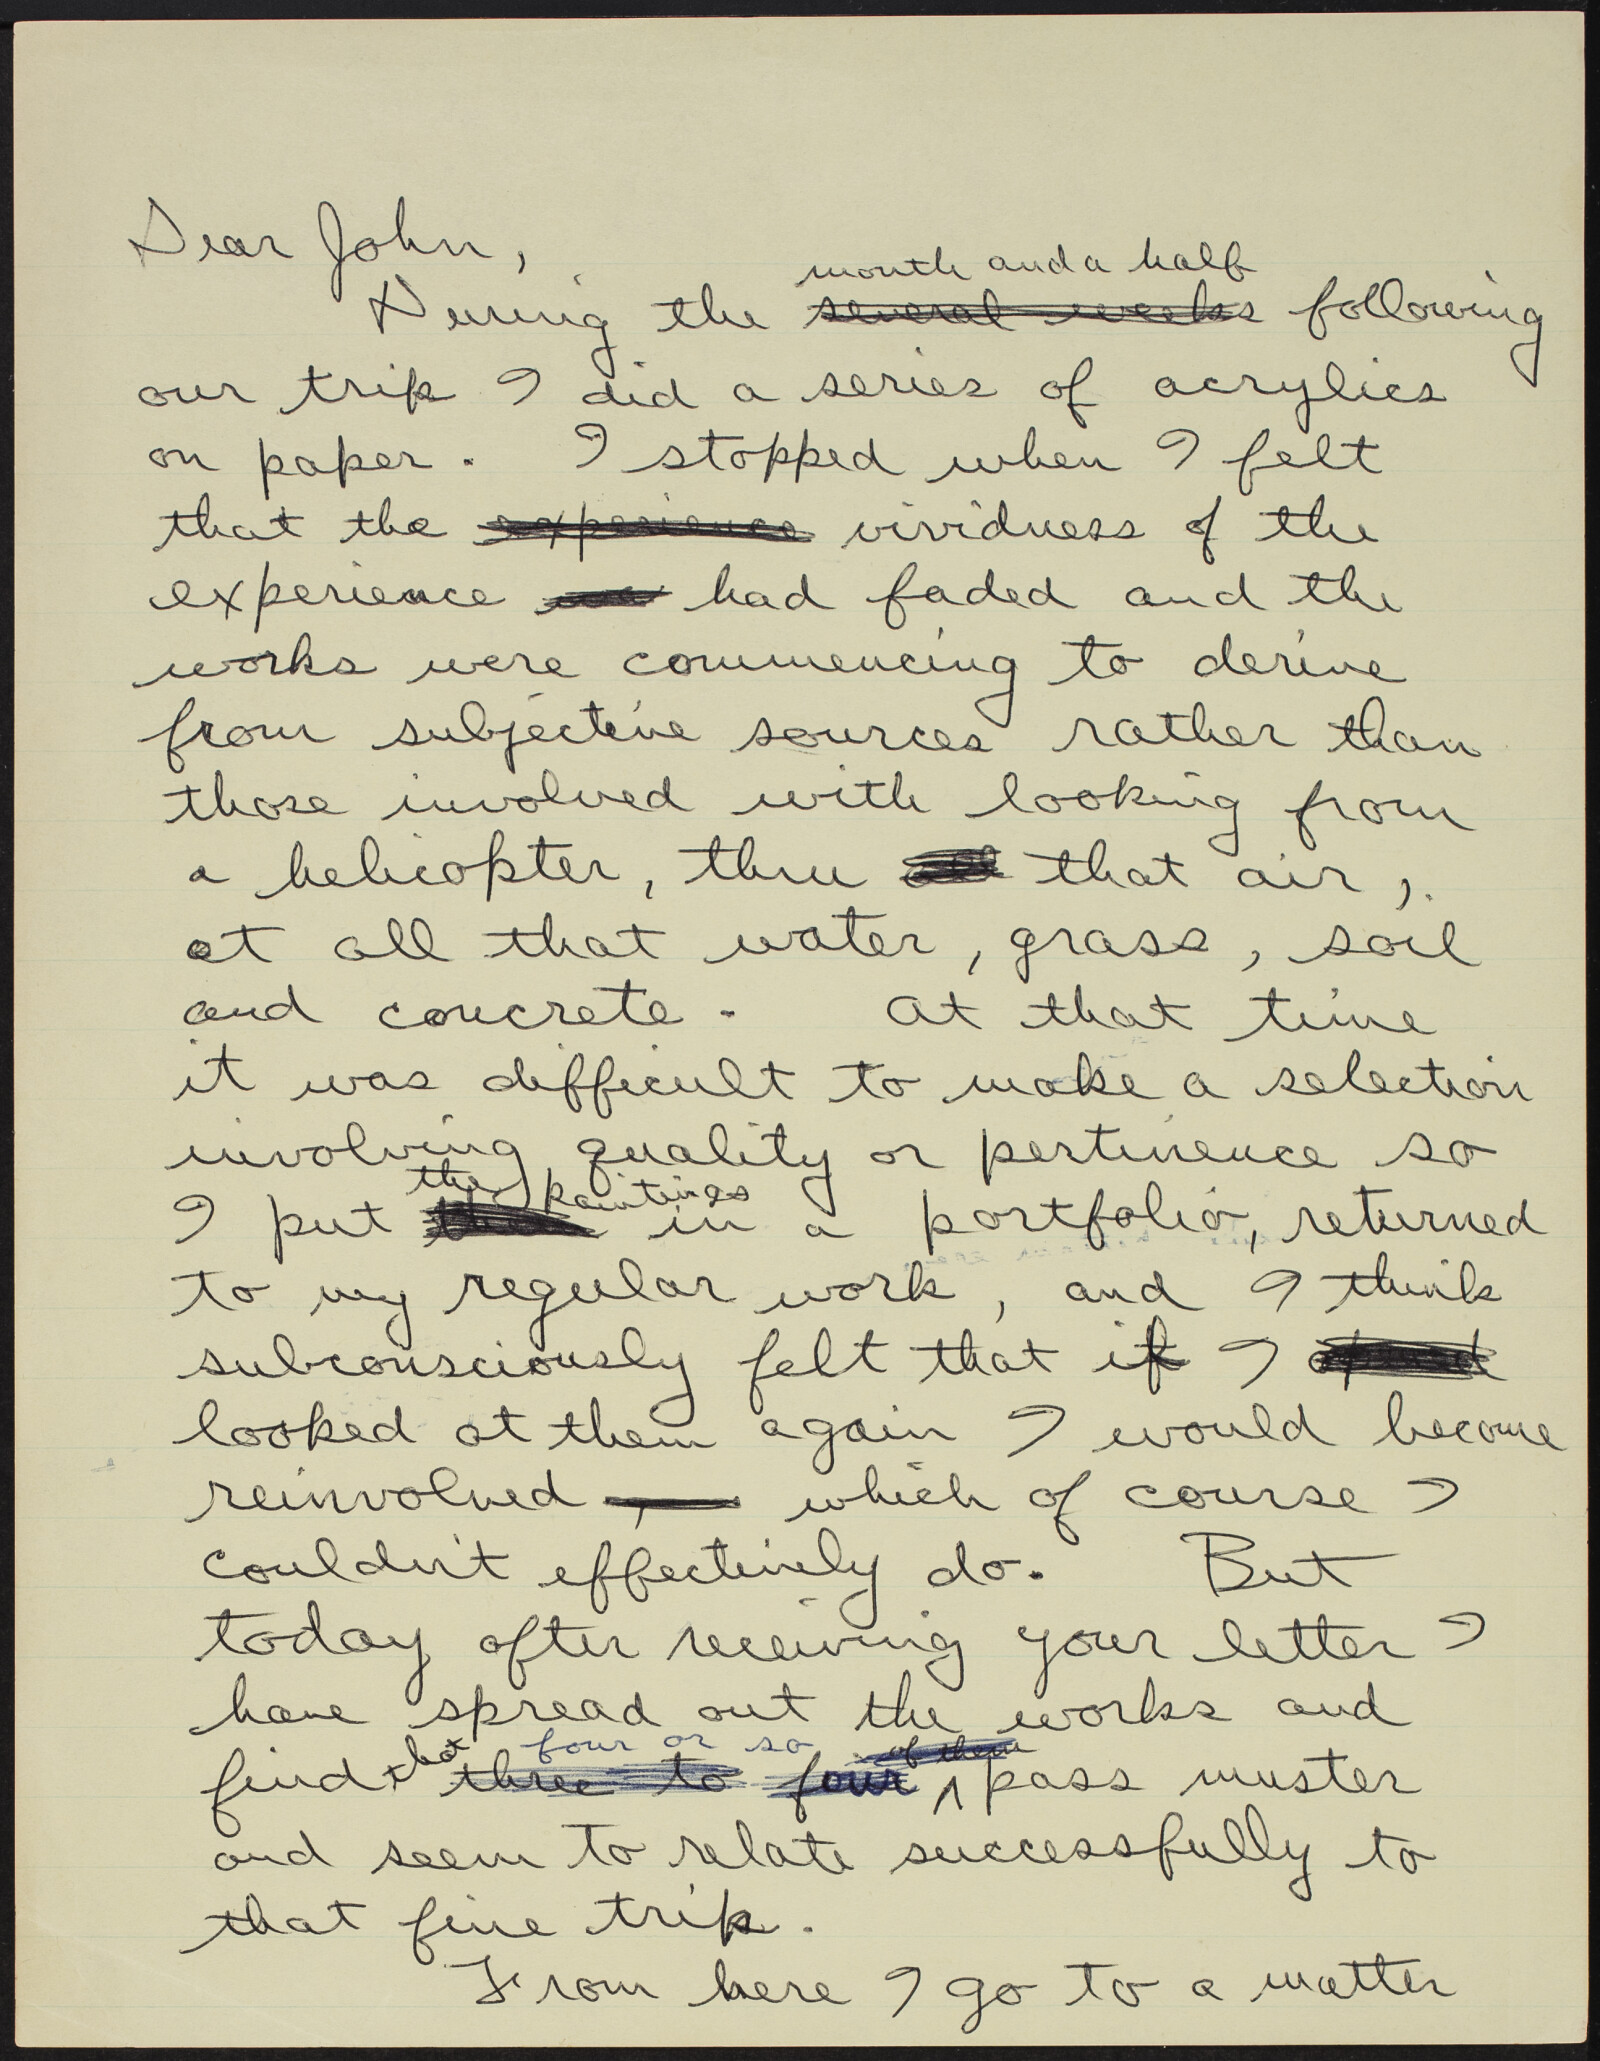 Dear John,
month and a half
During the several weeks following
our trip I did a series of acrylics
on paper. I stopped when I felt
that the experience vividness of the
experience had faded and the
works were commencing to derive
from subjective sources rather than
those involved with looking from
a helicopter, thru that air,
at all that water, grass, soil
and concrete. At that time
it was difficult to make a selection
involving quality or pertinence so
the paintings
I put them in a portfolio, returned
to my regular work, and I think
subconsciously felt that if I
looked at them again I would become
reinvolved — which of course I
couldn't effectively do. But
today after receiving your letter I
have spread out the works and
four or so of them
find that three to four pass muster
and seem to relate successfully to
that fine trip.
From here I go to a matter